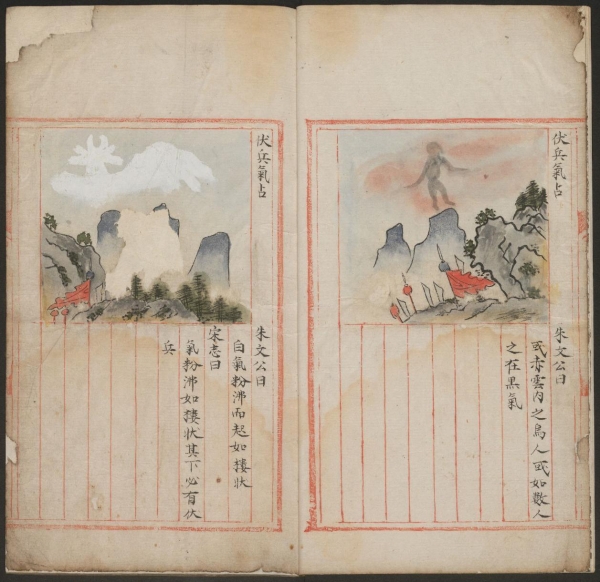 伏兵氣占
朱文公曰
或赤雲内之鳥人或如數人
之在黑氣
伏兵氣占
朱文公曰
白氣粉沸而起如樓狀
宋志曰
氣粉沸如樓狀其下必有伏
兵